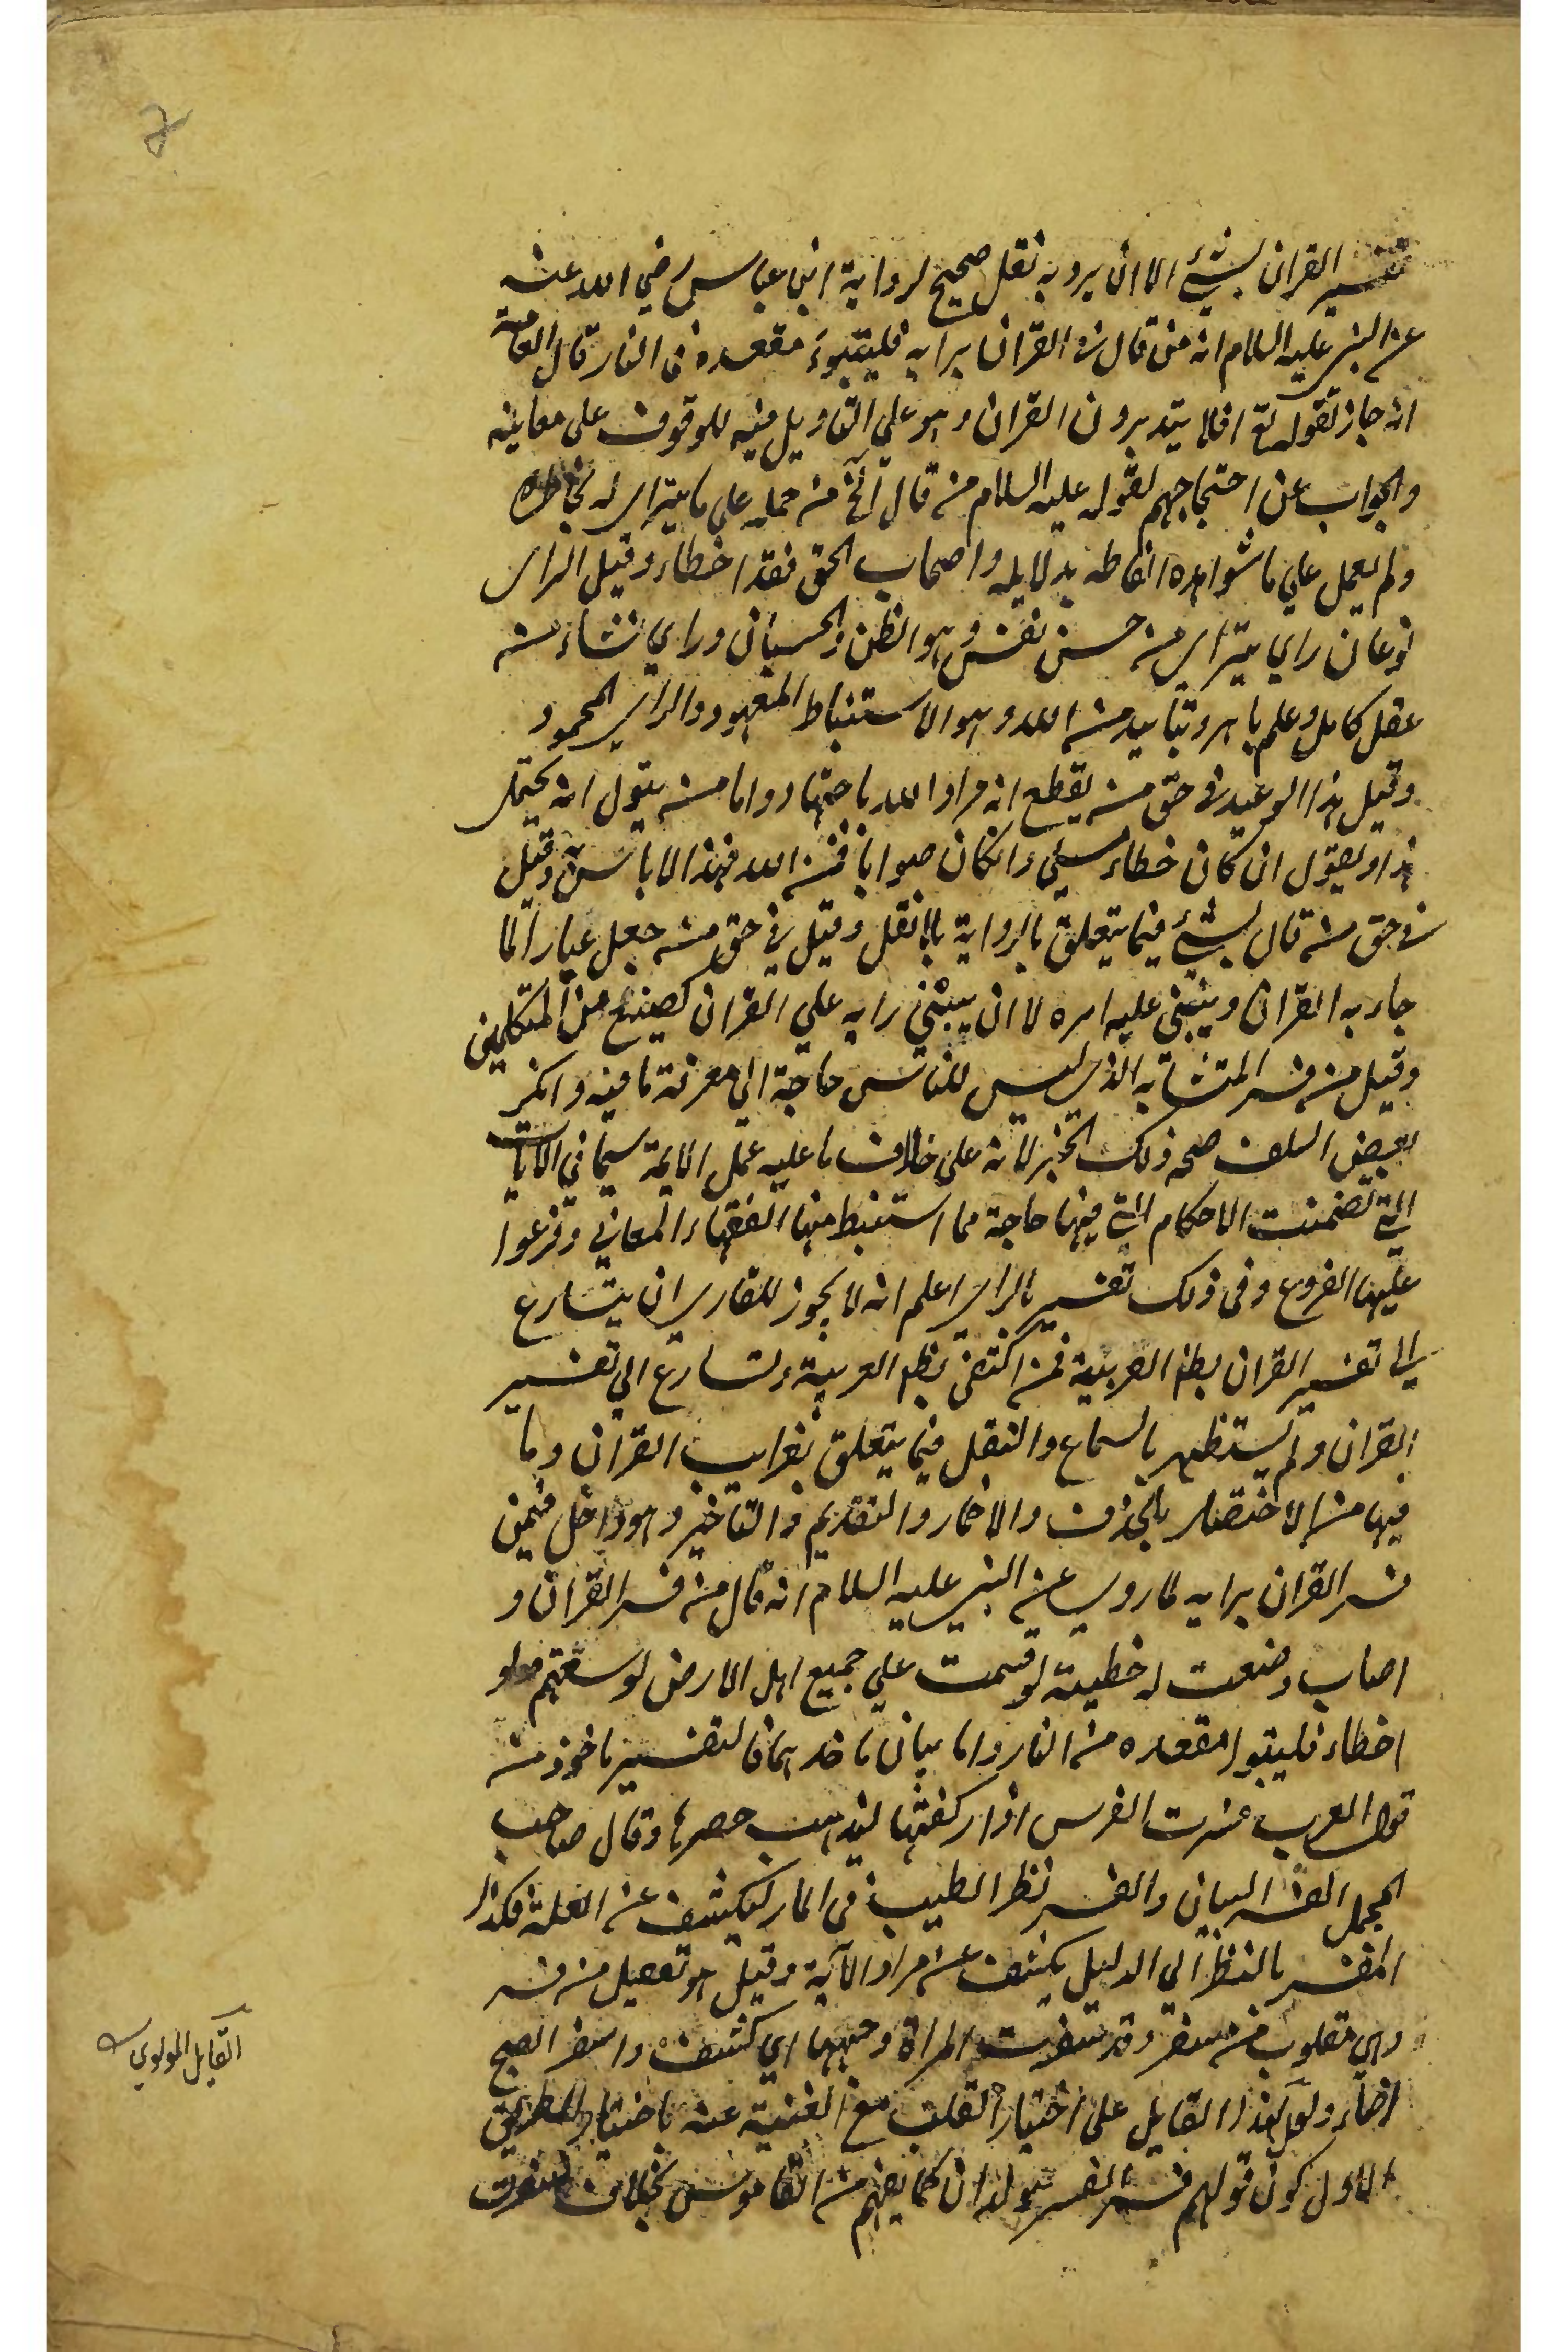 تفسير القران بشئ الا ان يرو به نقل صحيح لرواية ابن عباس رضي الله عنه
عن النبي عليه السلام انه من قال في القران برايه فليتبوء مقعده في النار قال العامة
انه جاز لقوله تع افلا يتدبرون القران وهو علي التاويل فيه للوقوف على معانيه
والجواب عن احتجاجهم لقوله عليه السلام من قال الخ من حمله علي ما يتراى له بخاطره
ولم يعمل علي ما شواهده الفاظه بدلايله واصحاب الحق فقد اخطاء وقيل الراى
نوعان راى يتراى من حسن نفس وهو الظن والحسبان وراى نشاء من
عقل كامل وعلم باهر وتبايد من الله وهو الاستنباط المعهود والراى المحمود
وقيل هذا الوعيد في حق من يقطع انه مراد الله باجتهاد واما من يقول انه يحتمل
هذا ويقول ان كان خطاء فمني وان كان صوابا فمن الله فهذا لا باس به وقيل
في حق من قال بشئ فيما يتعلق بالرواية بلا نقل وقيل في حق من جعل عيارا لما
جاء به القران ويبتني عليه امره لا ان يبتني رايه علي القران كصنع من المتكلمين
وقيل من فسر المتشابه الذى ليس للناس حاجة الى معرفة ما فيه وانكر
بعض السلف صحة ذلك الخبر لانه علي خلاف ما عليه عمل الايمة سيما في الايات
التي تضمنت الاحكام التي فيها حاجة مما استنبط منها الفقهاء المعاني وفرعوا
عليها الفروع وفى ذلك تفسير بالراى اعلم انه لا يجوز للقارى ان يتسارع
الى تفسير القران بظاهر العربية فمن اكتفى بظاهر العربية وتسارع الي تفسير
القران ولم يستظهر بالسماع والنقل فيما يتعلق بغرايب القران وما
فيها من الاختصار بالحذف والاضمار والتقديم والتاخير وهو داخل فيمن
فسر القران برايه لما روى عن النبي عليه السلام انه قال من فسر القران و
اصاب وضعت له خطيئة لو قسمت علي جميع اهل الارض لوسعتهم ولو
اخطاء فليتبوا مقعده من النار واما بيان ماخذهما فالتفسير ماخوذ من
قول العرب فسرت الفرس اذا ركضتها ليذهب حصرها وقال صاحب
المجمل الفسر البيان والفسر نظر الطبيب في الماء ليكشف عن العلة فكذا
المفسر بالنظر الى الدليل يكشف عن مراد الآية وقيل هو تفعيل من فسر
وهى مقلوب من سفر وقد سفرت المراة وجهها اي كشف واسفر الصبح
اضاء ولعل لهذا القايل على اختيار القلب مع الغنية عنه باختيار الطريق
الاول كون قولهم فسر الفسر مولدان كما يفهم من القاموس بخلاف سفرت
القايل المولوي